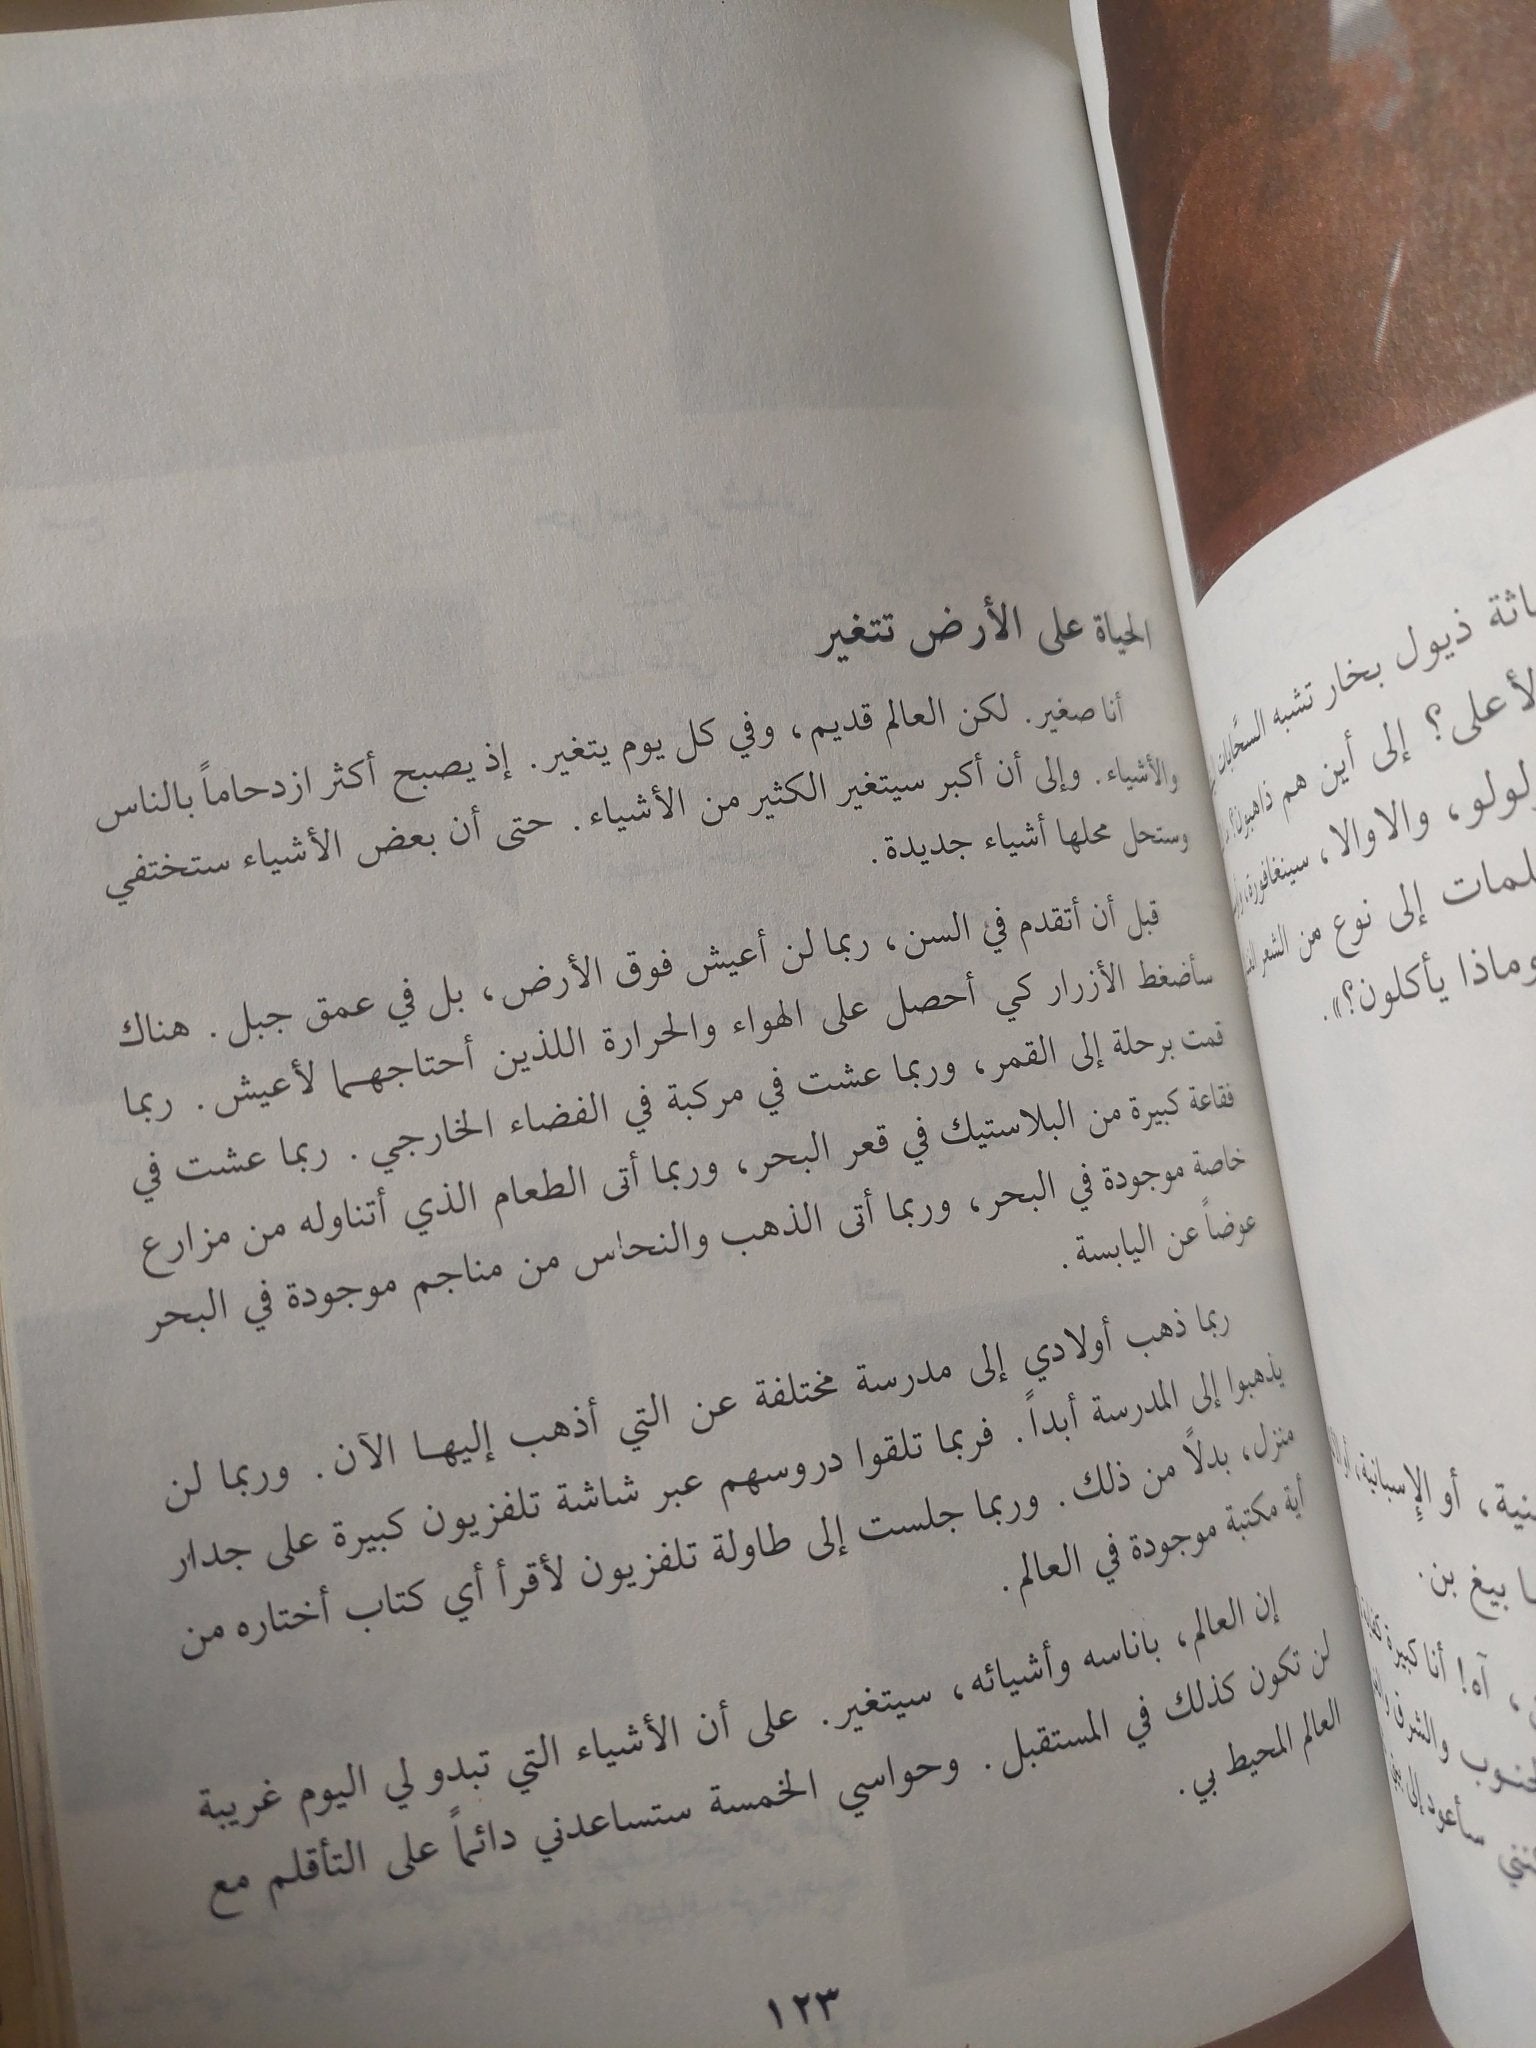 الحياة على الأرض تتغير
أنا صغير. لكن العالم قديم، وفي كل يوم يتغير. إذ يصبح أكثر ازدحاماً بالناس
والأشياء. وإلى أن أكبر سيتغير الكثير من الأشياء. حتى أن بعض الأشياء ستختفي
وستحل محلها أشياء جديدة.
قبل أن أتقدم في السن، ربما لن أعيش فوق الأرض، بل في عمق جبل. هناك
سأضغط الأزرار كي أحصل على الهواء والحرارة اللذين أحتاجهما لأعيش. ربما
قمت برحلة إلى القمر، وربما عشت في مركبة في الفضاء الخارجي. ربما عشت في
فقاعة كبيرة من البلاستيك في قعر البحر، وربما أتى الطعام الذي أتناوله من مزارع
خاصة موجودة في البحر، وربما أتى الذهب والنحاس من مناجم موجودة في البحر
عوضاً عن اليابسة.
ربما ذهب أولادي إلى مدرسة مختلفة عن التي أذهب إليها الآن. وربما لن
يذهبوا إلى المدرسة أبداً. فربما تلقوا دروسهم عبر شاشة تلفزيون كبيرة على جدار
منزل، بدلاً من ذلك. وربما جلست إلى طاولة تلفزيون لأقرأ أي كتاب أختاره من
أية مكتبة موجودة في العالم.
إن العالم، باناسه وأشيائه، سيتغير. على أن الأشياء التي تبدو لي اليوم غريبة
لن تكون كذلك في المستقبل. وحواسي الخمسة ستساعدني دائماً على التأقلم مع
العالم المحيط بي.
١٢٣
ذيول بخار تشبه السحابات
إلى أين هم ذاهبون؟
والاوالا، سينغافورة،
إلى نوع من الشعر
وماذا يأكلون؟».
أو الإسبانية، أو
بيغ بن.
آه! أنا كبيرة
والشرق
سأعود إلى